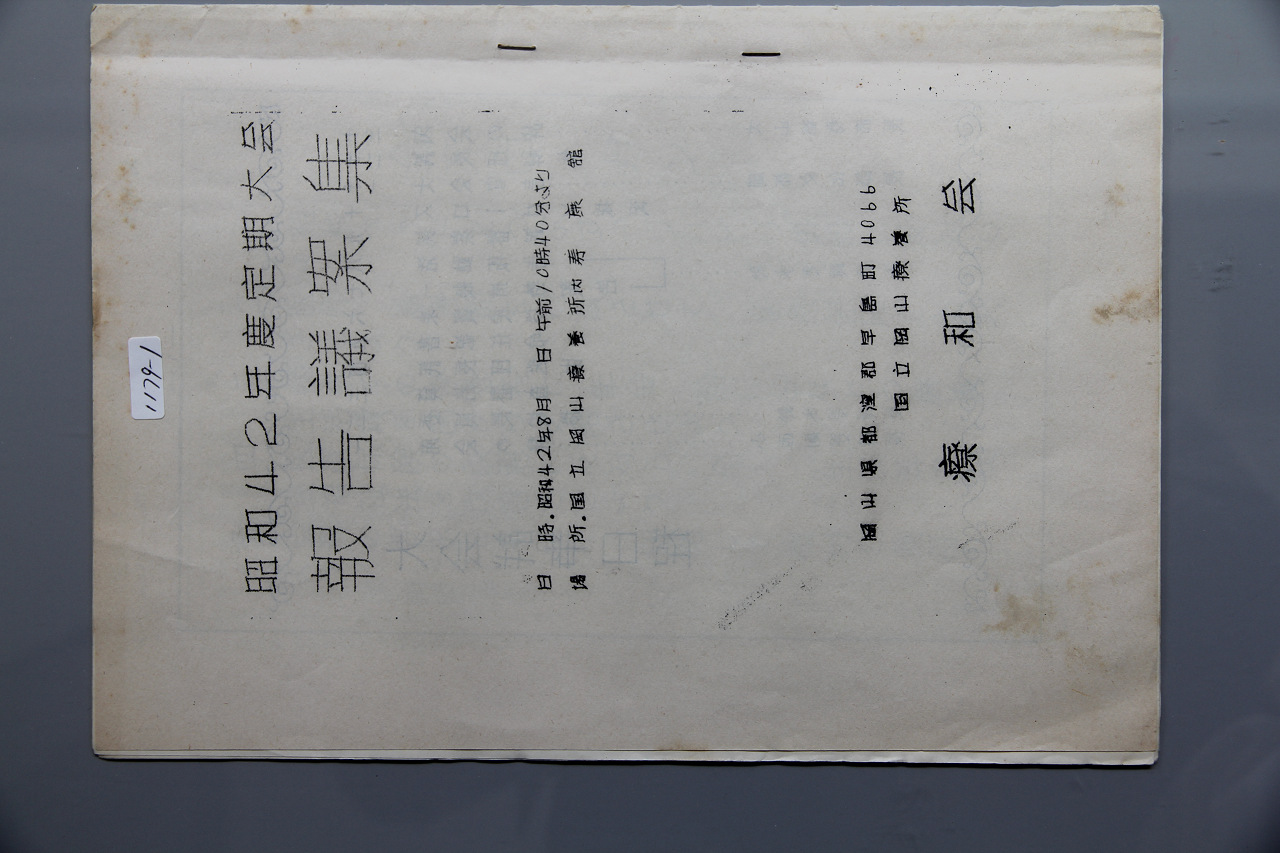 1179-1
昭和42年度定期大会
報告議案集
日 時.昭和42年8月 日 午前10時40分より
場 所.国立岡山療養所内寿康館
岡山県都窪郡早島町4066
国立岡山療養所
療和会
大会